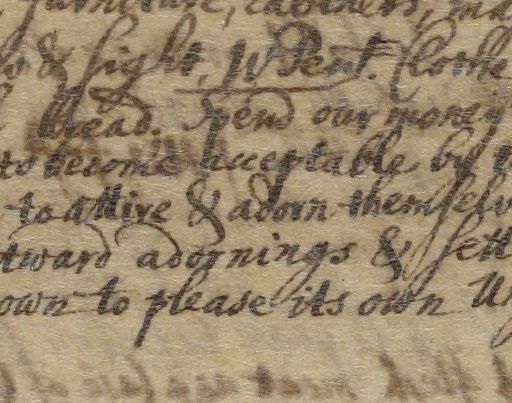 furniture, cabinets, ma
& sight, W Pent. Clothe
bread. Spend our money
to become acceptable by t
to attire & adorn themselv
tward adornings & sett
own to please its own